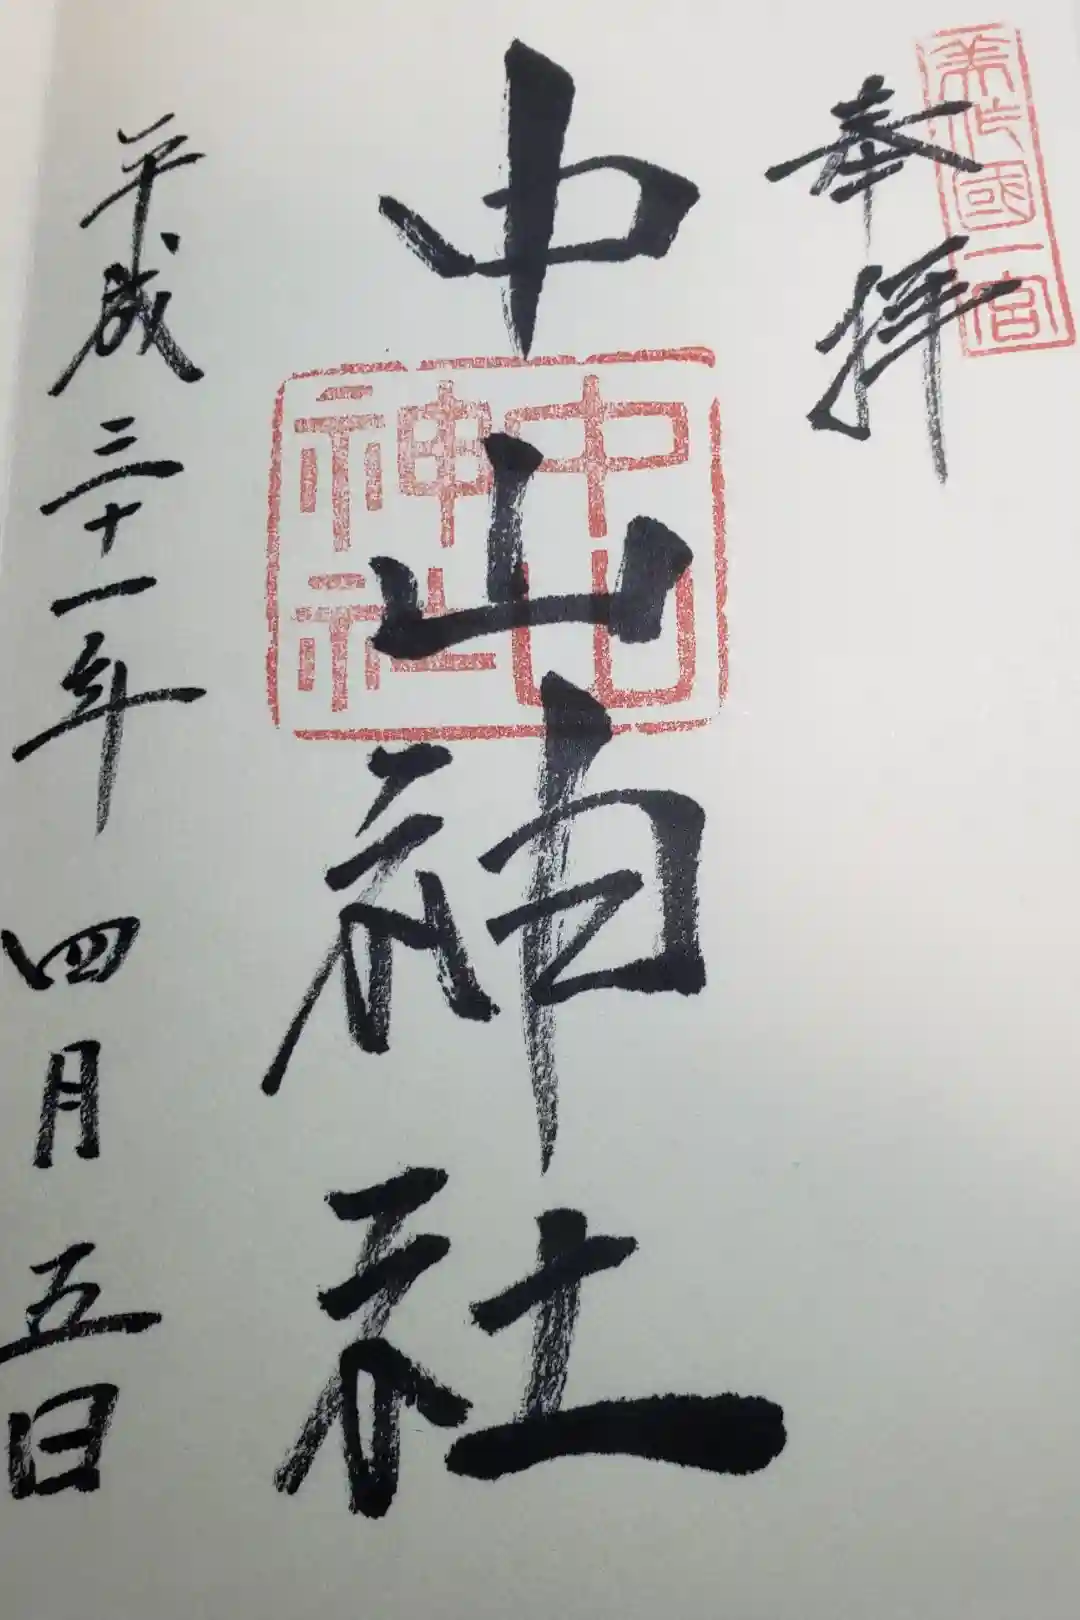 美作國一宮
奉拝
中山神社
中山
神社
平成三十一年四月五日